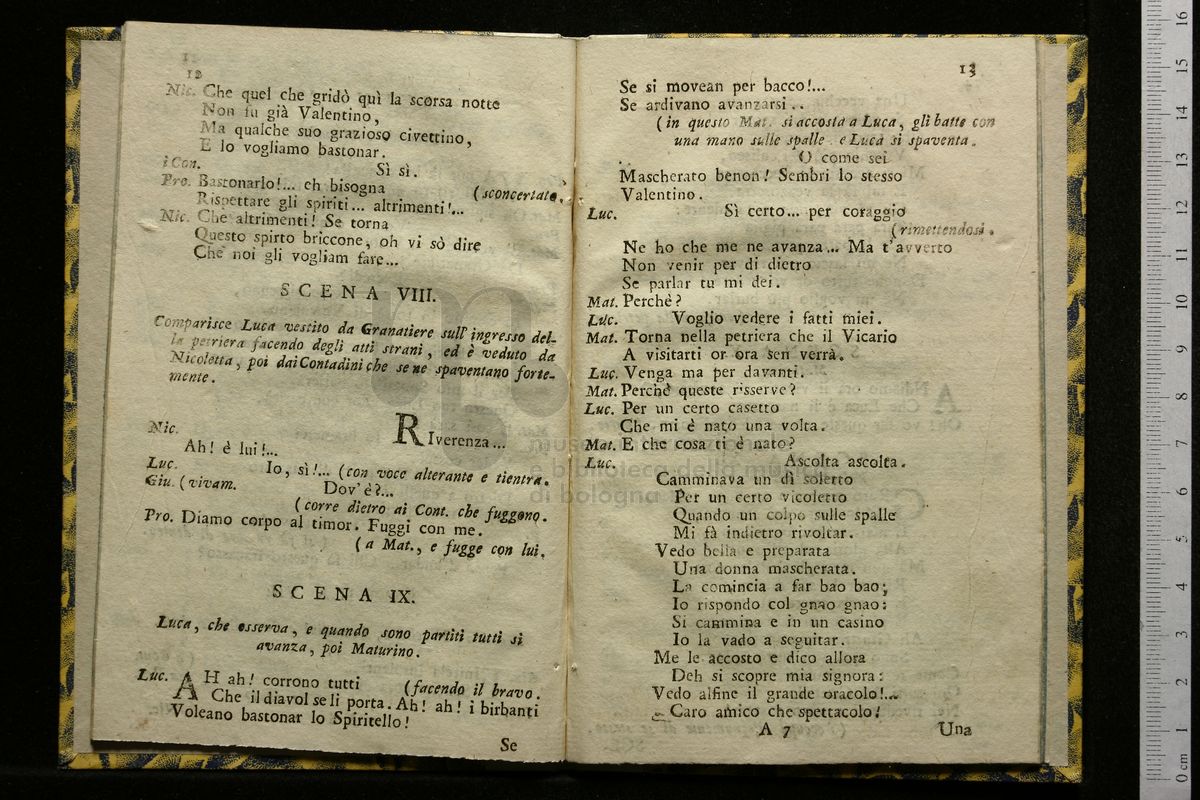 12
Nic. Che quel che gridò quì la scorsa notte
Non fu già Valentino,
Ma qualche suo grazioso civettino,
E lo vogliamo bastonar.
i Con. Sì sì.
Pro. Bastonarlo!... eh bisogna (sconcertato.
Rispettare gli spiriti... altrimenti!...
Nic. Che altrimenti! Se torna
Questo spirto briccone, oh vi sò dire
Che noi gli vogliam fare...
SCENA VIII.
Comparisce Luca vestito da Granatiere sull' ingresso del-
la petriera facendo degli atti strani, ed è veduto da
Nicoletta, poi dai Contadini che se ne spaventano forte-
mente.
Nic. RIverenza...
Ah! è lui!...
Luc. Io, sì!... (con voce alterante e tientra.
Giu. (vivam. Dov'è?...
(corre dietro ai Cont. che fuggono.
Pro. Diamo corpo al timor. Fuggi con me.
(a Mat., e fugge con lui.
SCENA IX.
Luca, che osserva, e quando sono partiti tutti si
avanza, poi Maturino.
Luc. AH ah! corrono tutti (facendo il bravo.
Che il diavol se li porta. Ah! ah! i birbanti
Voleano bastonar lo Spiritello!
Se
13
Se si movean per bacco!...
Se ardivano avanzarsi..
(in questo Mat. si accosta a Luca, gli batte con
una mano sulle spalle e Luca si spaventa.
O come sei
Mascherato benon! Sembri lo stesso
Valentino.
Luc. Sì certo... per coraggio
(rimettendosi.
Ne ho che me ne avanza... Ma t'avverto
Non venir per di dietro
Se parlar tu mi dei.
Mat. Perchè?
Luc. Voglio vedere i fatti miei.
Mat. Torna nella petriera che il Vicario
A visitarti or ora sen verrà.
Luc. Venga ma per davanti.
Mat. Perchè queste risserve?
Luc. Per un certo casetto
Che mi è nato una volta.
Mat. E che cosa ti è nato?
Luc. Ascolta ascolta.
Camminava un dì soletto
Per un certo vicoletto
Quando un colpo sulle spalle
Mi fà indietro rivoltar.
Vedo bella e preparata
Una donna mascherata.
La comincia a far bao bao;
Io rispondo col gnao gnao:
Si cammina e in un casino
Io la vado a seguitar.
Me le accosto e dico allora
Deh si scopre mia signora:
Vedo alfine il grande oracolo!...
Caro amico che spettacolo!
A 7 Una
museo
e biblioteca della musica
di bologna
0 cm 1 2 3 4 5 6 7 8 9 10 11 12 13 14 15 16